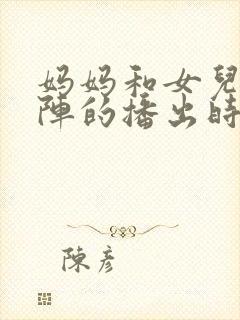 妈妈和女兒
陣的播出時
陳彥